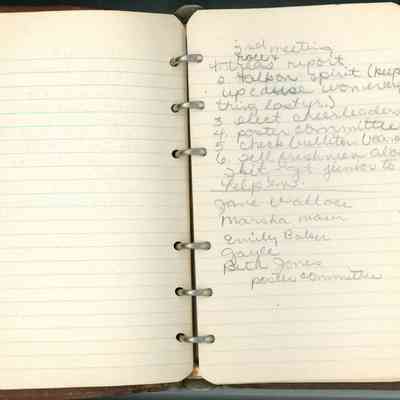 2nd meeting
4. treas report
2. talk on spirit (keep
up cause won every
thing last yr.)
3. elect cheerleaders
4. poster committee
5. check bulliten board
6. sell freshmen
get junior to
help 'em.
Jane Wallace
Marsha Main
Emily Baker
Gayle
Beth Jones
poster committee